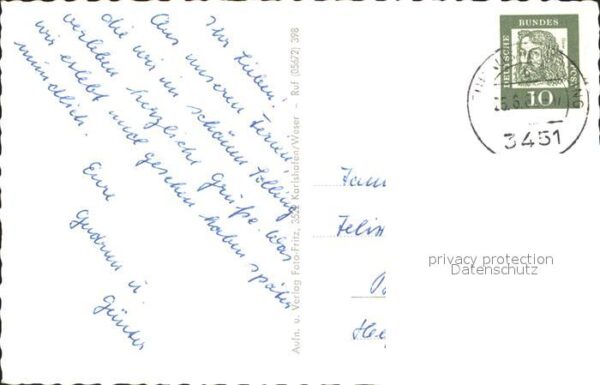 Ihr Lieben!
Aus unseren Ferien,
die wir im schönen Solling
verleben herzliche Grüße. Was
wir erlebt und gesehen haben später
mündlich.
Eure
Gudrun u.
Günter
Aufn. u. Verlag Foto-Fritz, 3522 Karlshafen/Weser - Ruf (05672) 398
DEUTSCHE
BUNDES
10
3451
Fam
Felix
privacy protection
Datenschutz